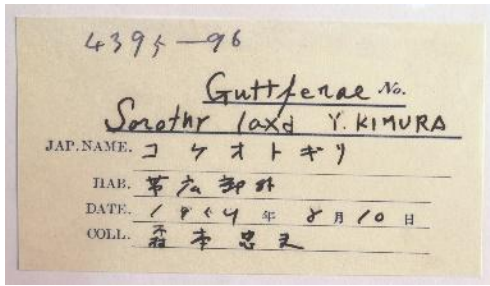 4395-96
Guttferae No.
Sarothr laxa Y. KIMURA
JAP. NAME. コケオトギリ
HAB. 第六
DATE. 年 8月10日
COLL. 森本忠